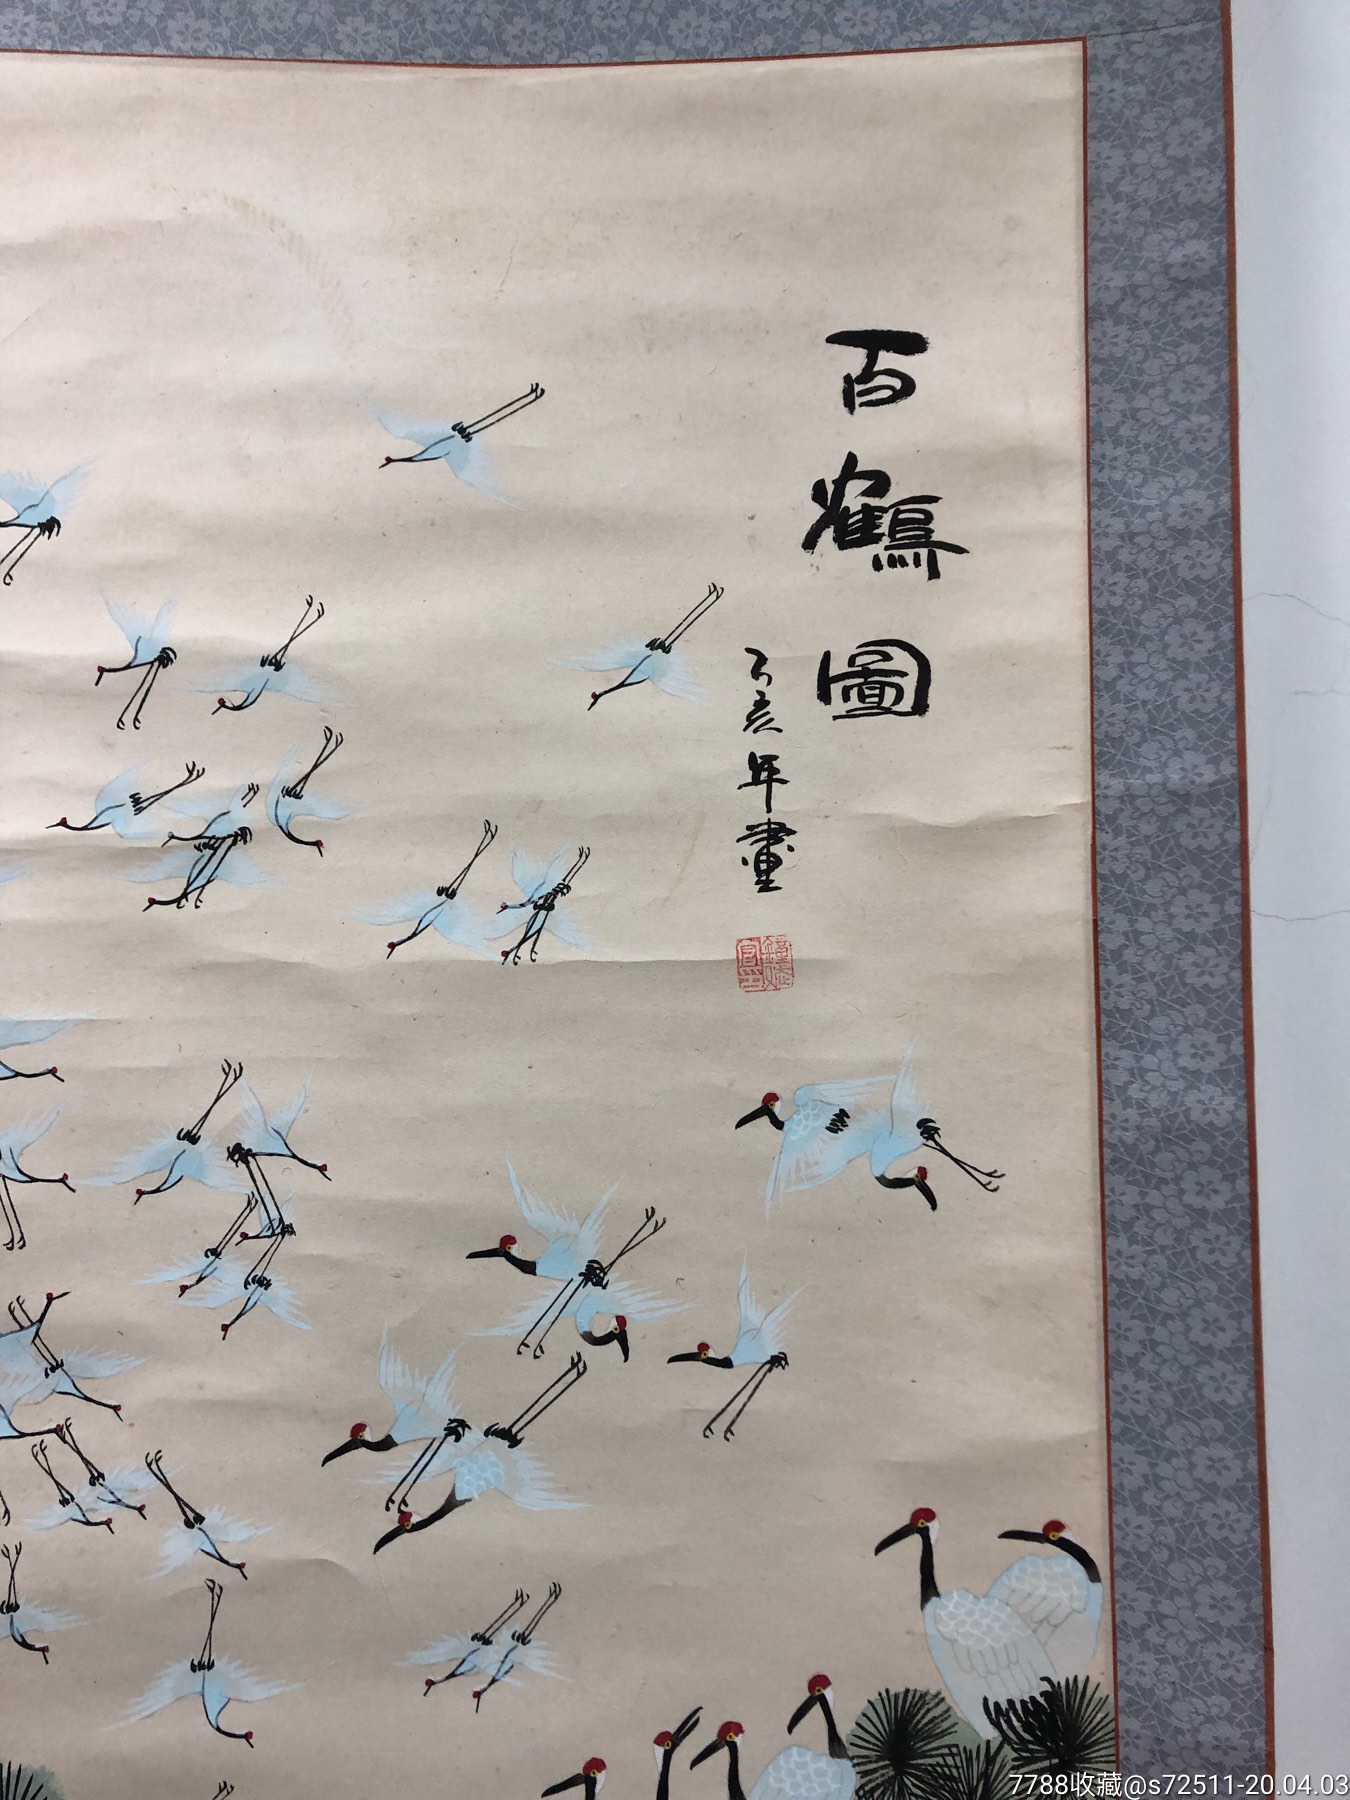 百鶴圖
亥年畫
7788收藏@s72511-20.04.03